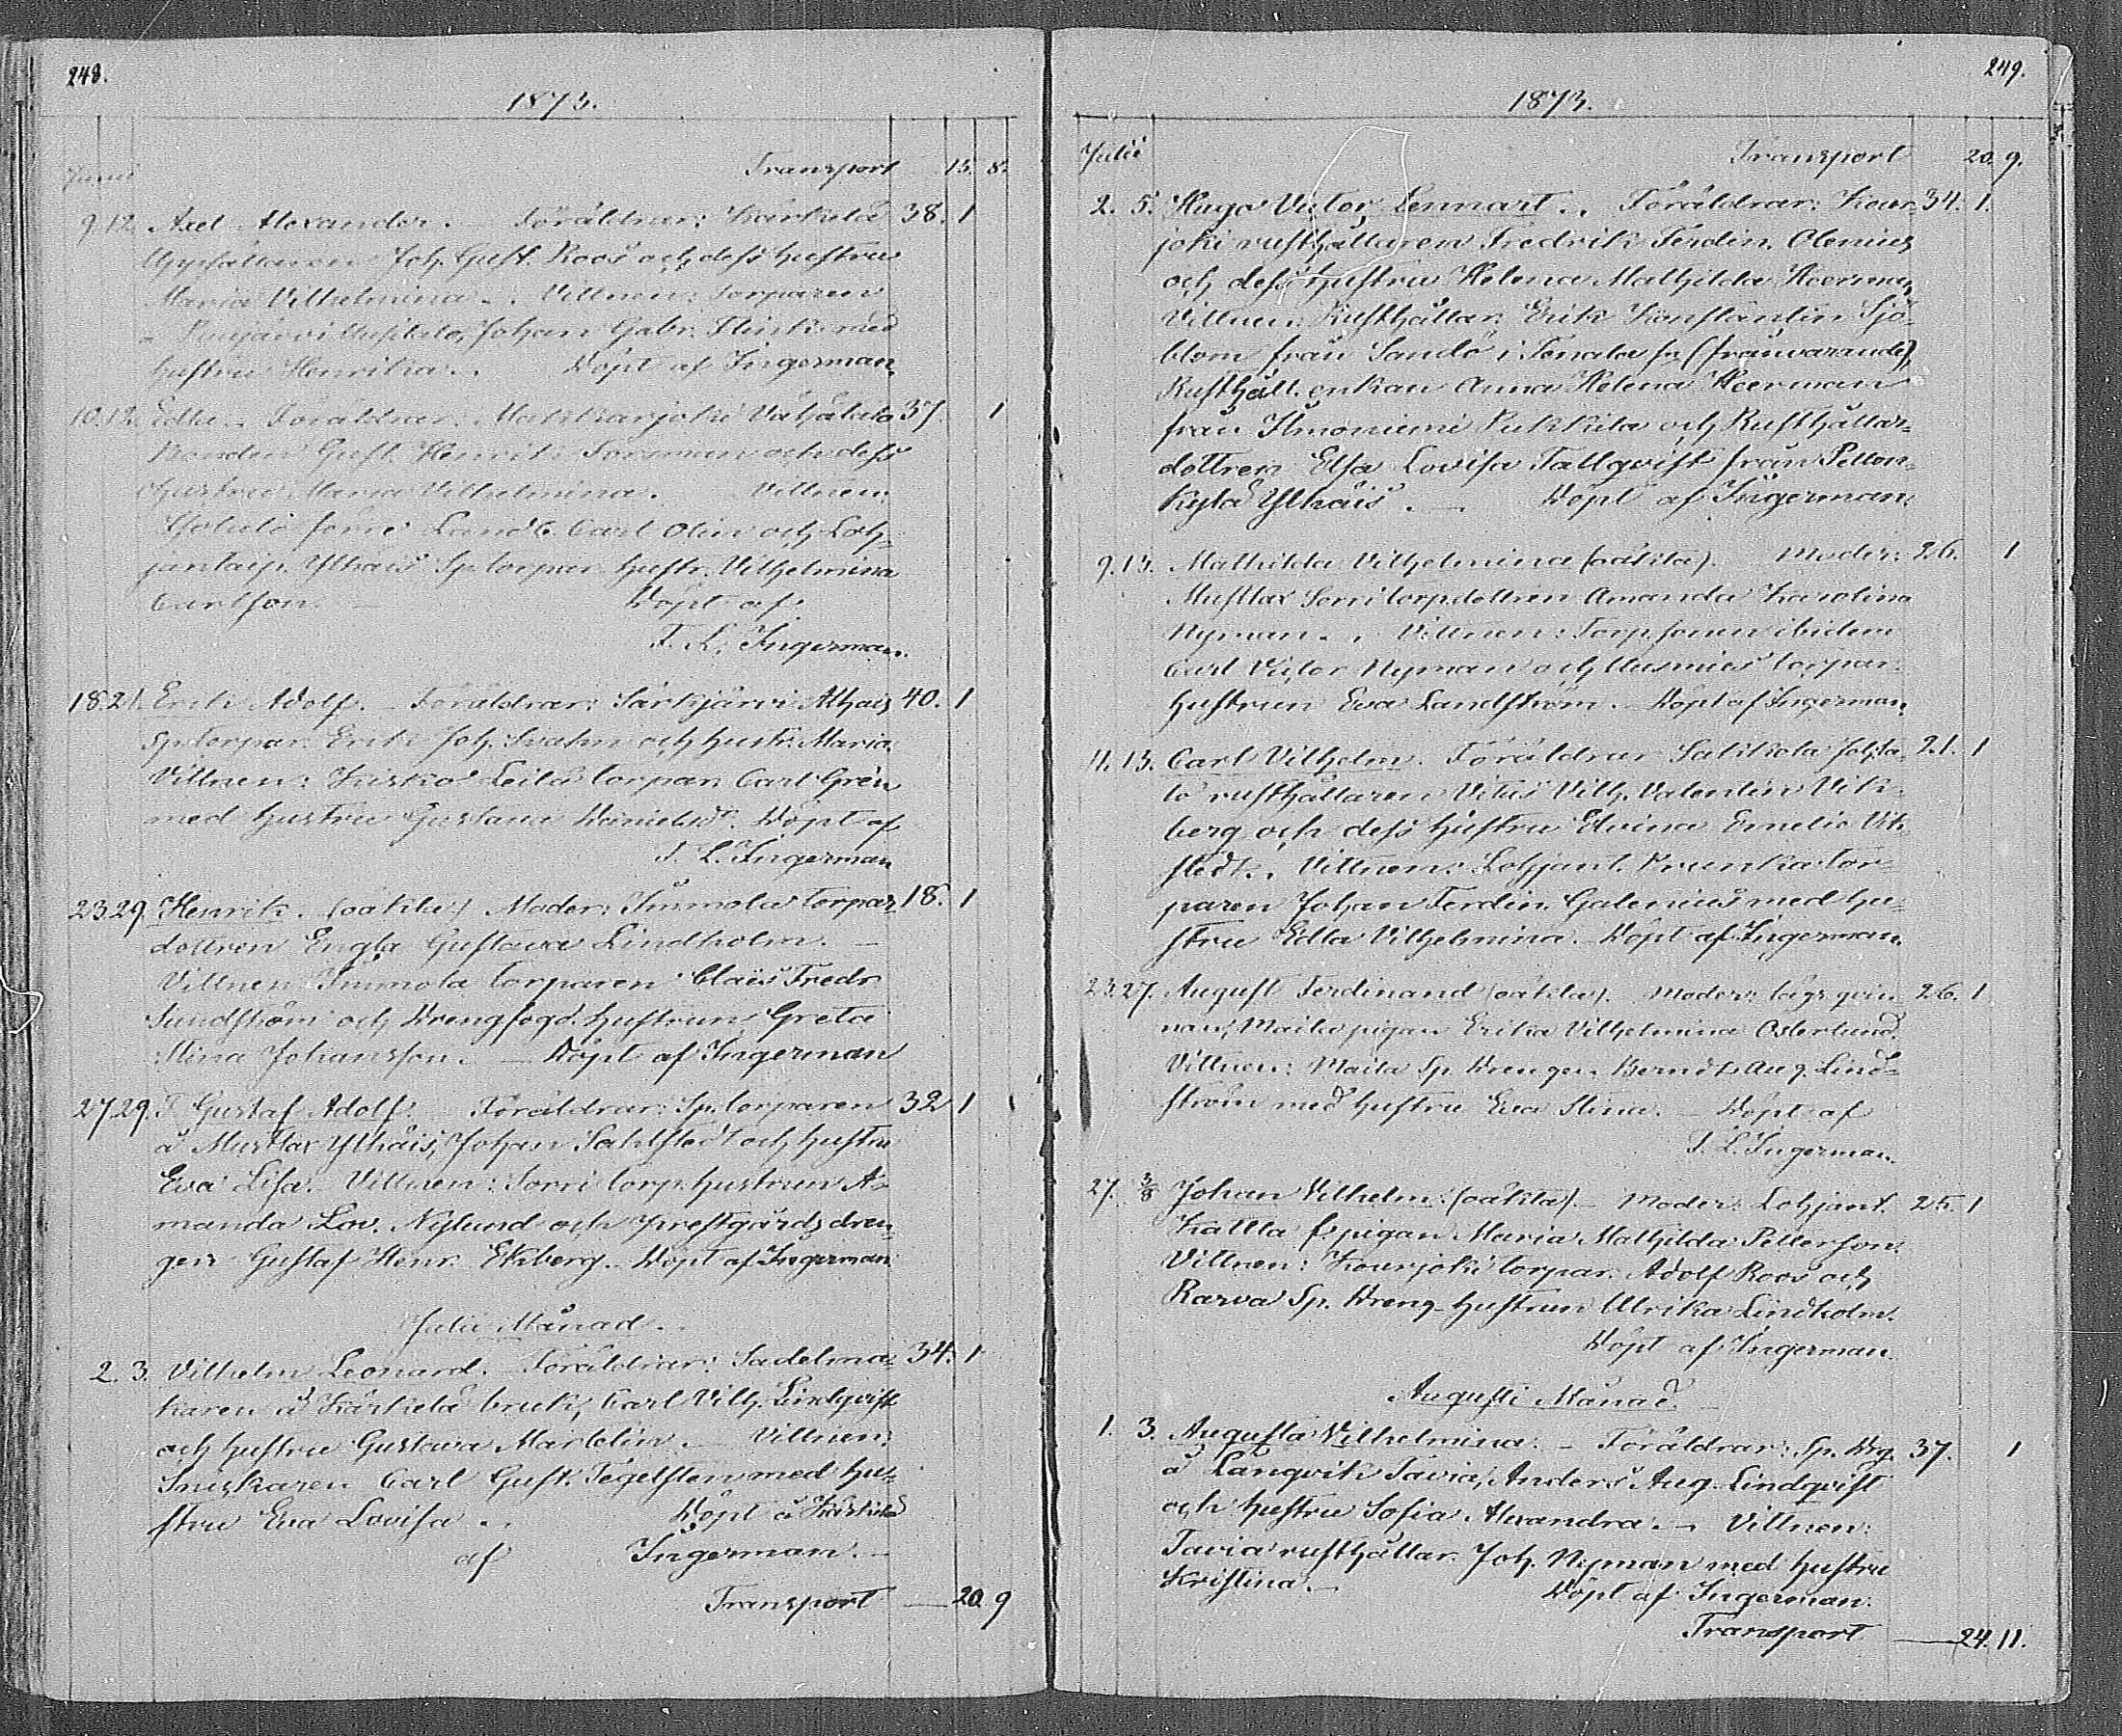 248.
1873.
Junii Transport 15. 8.
9. 12. Axel Alexander. Föräldrar: Kärkelä 38. 1
Uppsåttaren Joh. Gust. Roos och dess hustru
Maria Vilhelmina. Vittnen: torparen
Johan Gabr. Flink med
hustru Henrika. Döpt af Ingerman.
10. 12. Edla. Föräldrar: Makkarjoki Vähätalo 37. 1
Bonden Gust. Henrik Forsman och dess
hustru Maria Vilhelmina. Vittnen:
förre Landb. Carl Olin och Loh-
jantaip. Ylhäis Sp. torpar hustr. Vilhelmina
Carlson. Döpt af
F. L. Ingerman.
18. 21. Erik Adolf. Föräldrar: Särkjärvi Alhais 40. 1
Sp. torpar. Erik Joh. Svahn och hustr. Maria.
Vittnen: Kisko Leilä torpar. Carl Grén
med hustru Gustava Danielsd. Döpt af
F. L. Ingerman
23. 29. Henrik. (oäkta) Moder: Immola torpar- 18. 1
dottren Engla Gustava Lindholm. —
Vittnen Immola torparen Claës Fredr
Sundström och Drengfogd. hustrun Greta
Stina Johansson. — Döpt af Ingerman
27. 29. T. Gustaf Adolf. Föräldrar: Sp. torparen 32 1
å Musttax Ylhäis, Johan Sahlstedt och hustru
Eva Lisa. Vittnen: Sorri torp. hustrun A-
manda Lov. Nylund och prestgårds dren-
gen Gustaf Henr. Ekberg. Döpt af Ingerman
Julii Månad.
2. 3. Vilhelm Leonard. Föräldrar: Sadelma- 34. 1
karen å Kärkelä bruk, Carl Vilh. Lindqvist
och hustru Gustava Martelin. — Vittnen:
Snickaren Carl Gust. Tegelsten med hu-
stru Eva Lovisa. Döpt å Kärkelä
af Ingerman. —
Transport — 20. 9
249.
1873.
Julii Transport 20. 9.
2. 5. Hugo Victor Lennart. Föräldrar: Kour- 34. 1.
joki rusthållaren Fredrik Ferdin. Olenius
och dess hustru Helena Mathilda Heerman,
Vittnen: Rusthållar. Erik Konstantin Sjö-
blom från Sandö i Tenala sn (frånvarande),
Rusthåll. enkan Anna Helena Heerman
från Ilmoniemi Pukkila och Rusthållar-
dottren Elsa Lovisa Tallqvist från Pellon-
kylä Ylhäis. — Döpt af Ingerman.
9. 13. Mathilda Vilhelmina (oäkta). Moder: 26. 1
Musttax Sorri torp. dottren Amanda Karolina
Nyman. Vittnen: Torp. sonen ibidem
Carl Victor Nyman och Uusmies torpar-
hustrun Eva Landström. Döpt af Ingerman.
11. 13. Carl Vilhelm. Föräldrar Sakkola Johta- 21. 1
lo rusthållaren Vitus Vilh. Valentin Vik-
berg och dess hustru Elvina Emelie Vik-
stedt. Vittnen: Lohjant. Prunka tor-
paren Johan Ferdin. Galenius med hu-
stru Edla Vilhelmina. Döpt af Ingerman.
23. 27. August Ferdinand (oäkta). Moder: lägr. qvin- 26. 1
nan, Maila pigan Erika Vilhelmina Österlund.
Vittnen: Maila Sp. Drengen Berndt Aug. Lind-
ström med hustru Eva Stina. — Döpt af
F. L. Ingerman.
27. 3/8 Johan Vilhelm. (oäkta). — Moder: Lohjant. 25. 1
Kattla f. pigan Maria Mathilda Petterson.
Vittnen: Kourjoki torpar. Adolf Roos och
Karva Sp. Dreng-hustrun Ulrika Lindholm.
Döpt af Ingerman
Augusti Månad.
1. 3. Augusta Vilhelmina. — Föräldrar: Sp. Drg. 37. 1
å Långvik Tavia, Anders Aug. Lindqvist
och hustru Sofia Alexandra. — Vittnen:
Tavia rusthållar. Joh. Nyman med hustru
Kristina. — Döpt af Ingerman.
Transport — 24. 11.